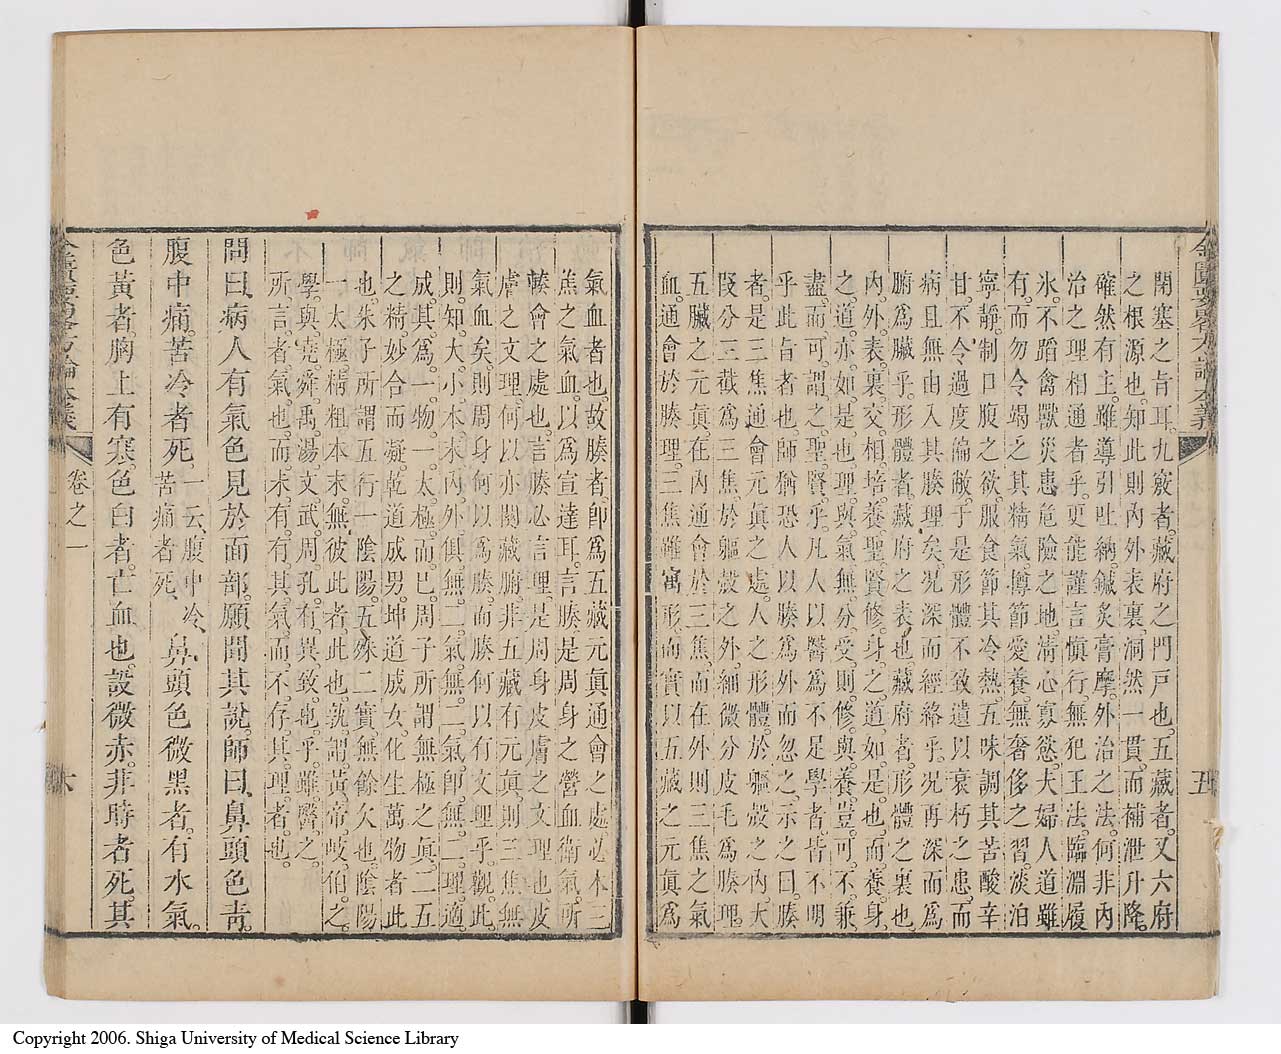 閉塞之旨耳九竅者藏府之門戸也五藏者又六府
之根源也知此則內外表裏洞然一貫而補泄升降
確然有主雖導引吐納鍼灸膏摩外治之法何非內
治之理相通者乎更能謹言慎行無犯王法臨淵履
氷不蹈禽獸災患危險之地淸心寡慾夫婦人道雖
有而勿令竭之其精氣撙節愛養無奢侈之習淡泊
寧靜制口腹之欲服食節其冷熱五味調其苦酸辛
甘不令過度偏敝于是形體不致遺以衰朽之患而
病且無由入其腠理矣况深而經絡乎况再深而爲
腑爲臟乎形體者藏府之表也藏府者形體之裏也
內外表裏交相培養聖賢修身之道如是也而養身
之道亦如是也理與氣無分受則修與養豈可不兼
盡而可謂之聖賢乎凡人以醫爲不足學者皆不明
乎此旨者也師猶恐人以腠爲外而忽之示之曰腠
者是三焦通會元眞之處人之形體於軀殼之內大
段分三截爲三焦於軀殼之外細微分皮毛爲腠理
五臟之元眞在內通會於三焦而在外則三焦之氣
血通會於腠理三焦雖寓形而實以五藏之元眞爲
金匱要畧方論本義
五
氣血者也故腠者卽爲五藏元眞通會之處必本三
焦之氣血以爲宣達耳言腠是周身之營血衛氣所
輳會之處也言腠必言理是周身皮膚之文理也皮
膚之文理何以亦關藏腑非五藏有元眞則三焦無
氣血矣則周身何以爲腠而腠何以有文理乎觀此
則知大小本末內外俱無二氣無二氣卽無二理適
成其爲一物一太極而已周子所謂無極之眞二五
之精妙合而凝乾道成男坤道成女化生萬物者此
也朱子所謂五行一陰陽五殊二實無餘欠也陰陽
一太極精粗本末無彼此者此也孰謂黃帝岐伯之
學與堯舜禹湯文武周孔有異致也乎雖醫之
所言者氣也而未有有其氣而不存其理者也
問曰病人有氣色見於面部願聞其說師曰鼻頭色靑
腹中痛苦冷者死一云腹中冷苦痛者死鼻頭色微黑者有水氣
色黃者胸上有寒色白者亡血也設微赤非時者死其
金匱要畧方論本義
卷之一
六
Copyright 2006. Shiga University of Medical Science Library